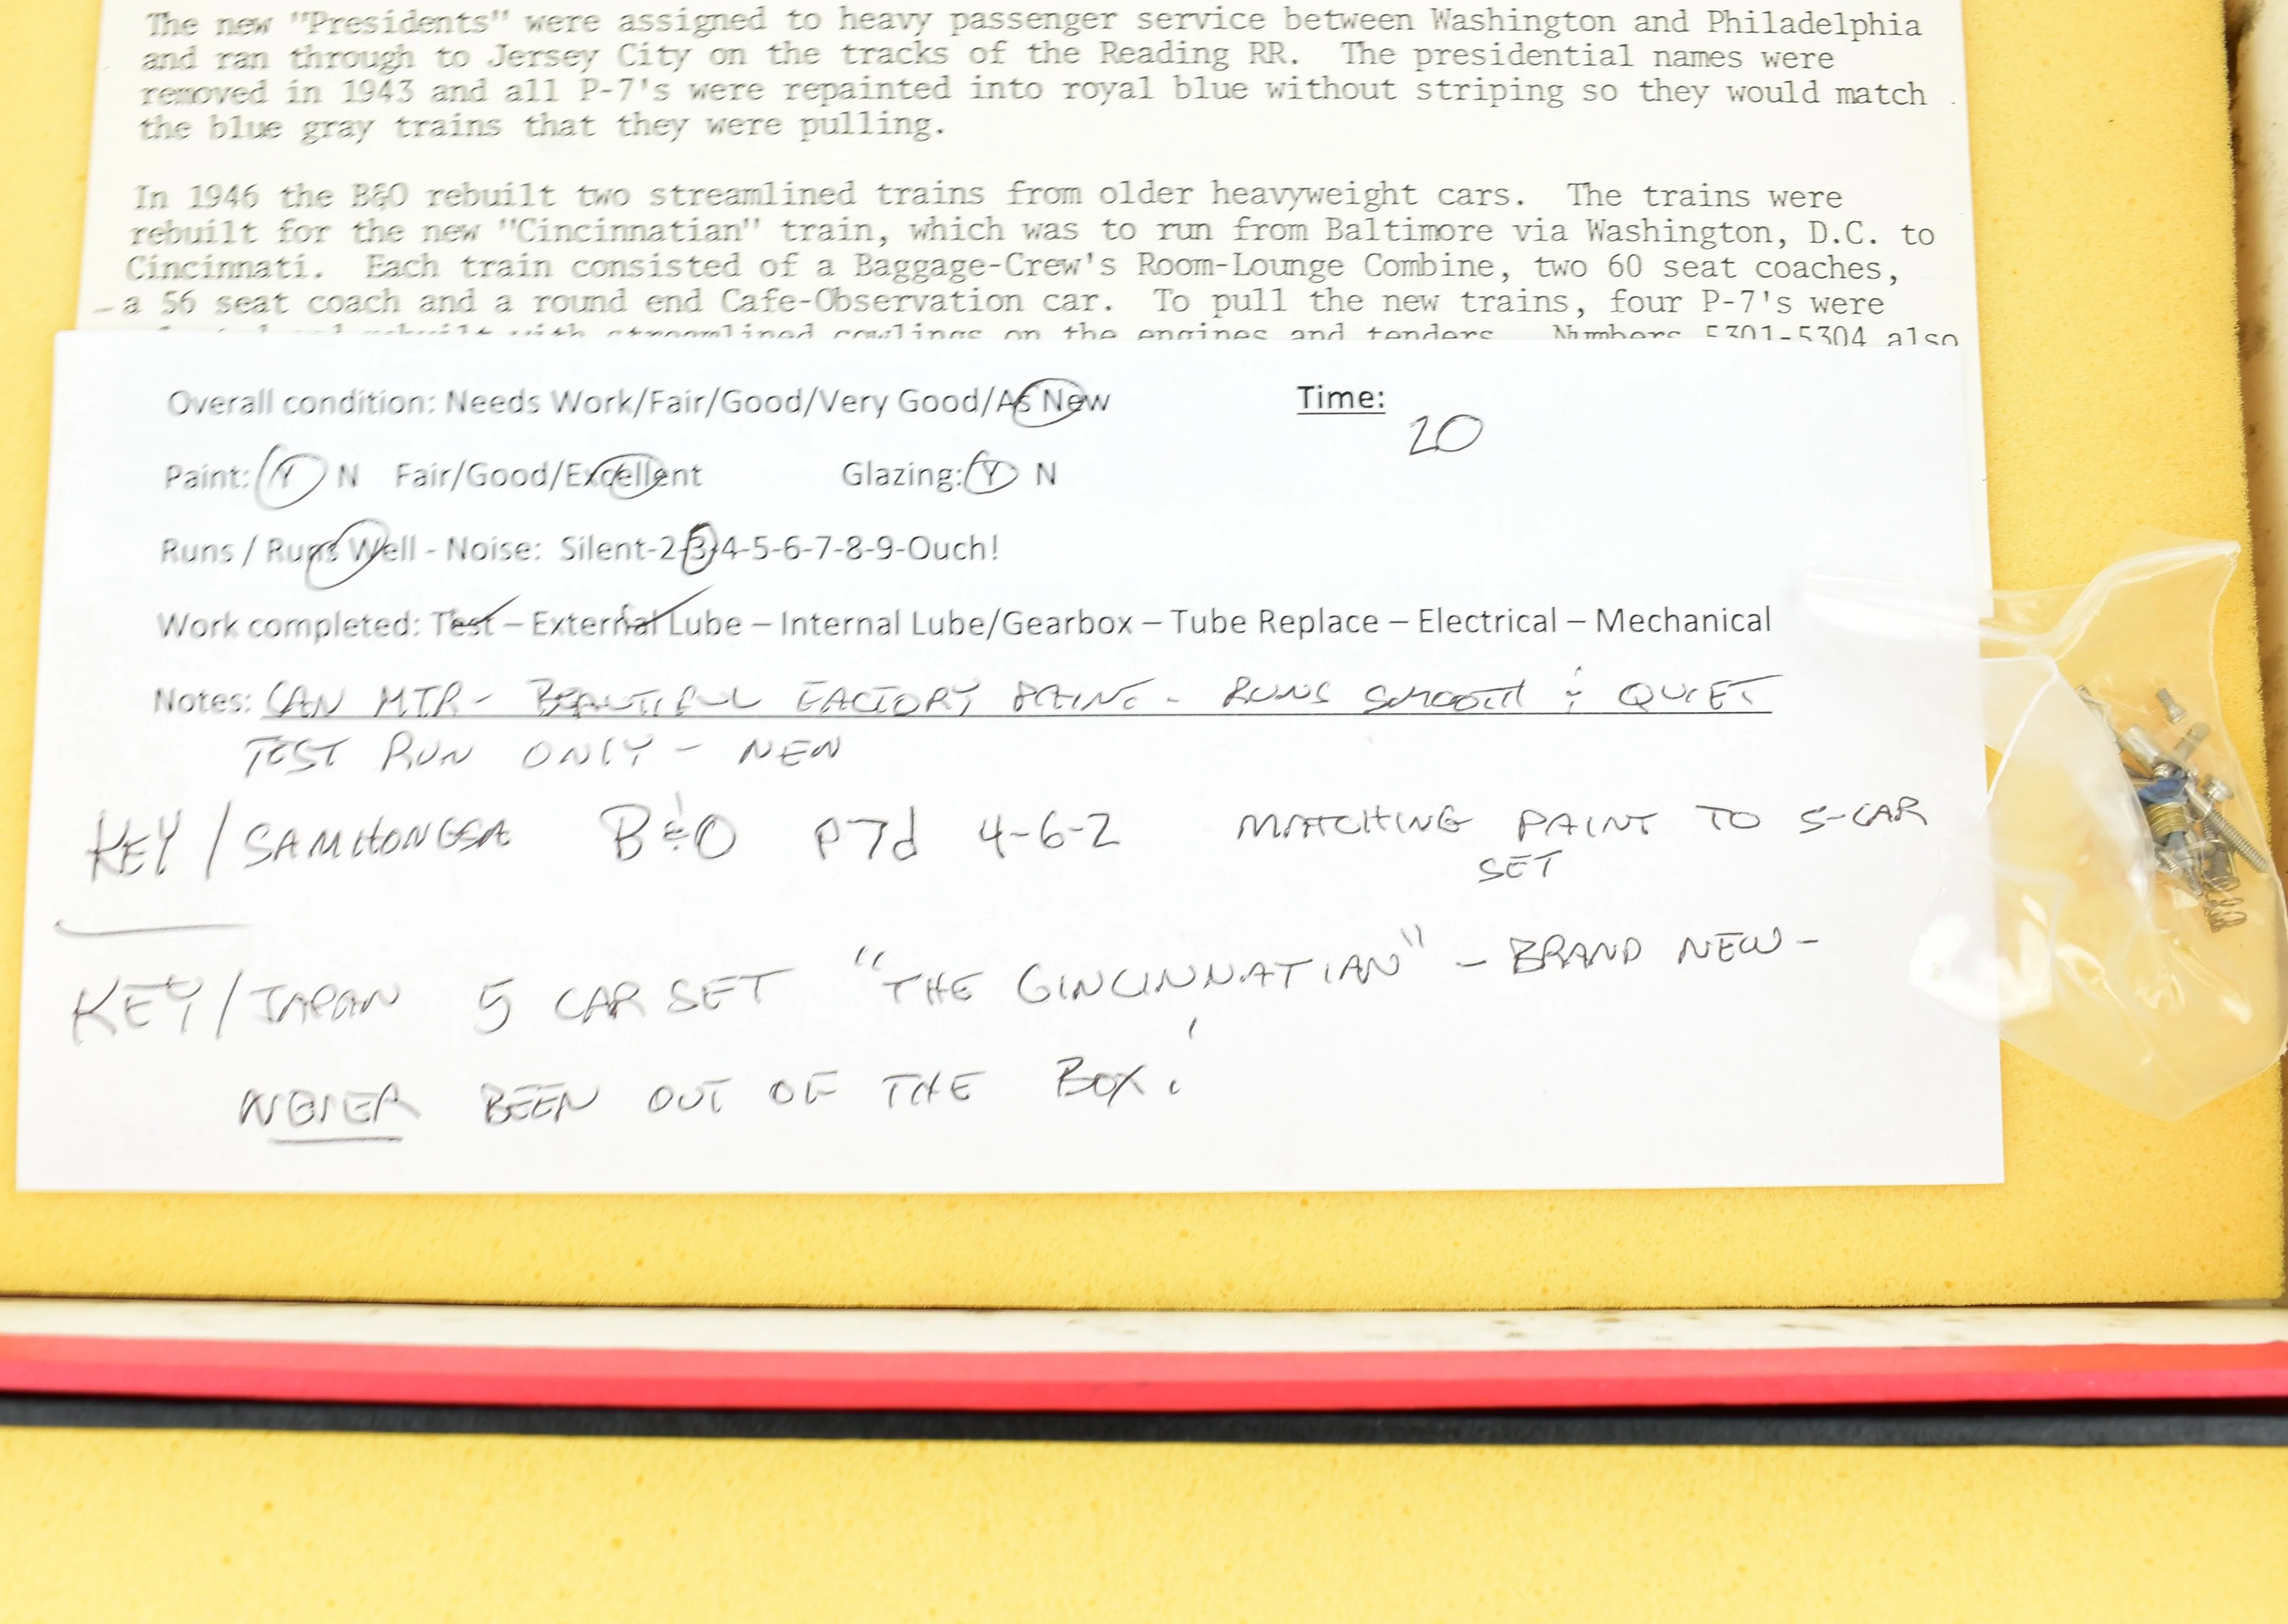 The new "Presidents" were assigned to heavy passenger service between Washington and Philadelphia
and ran through to Jersey City on the tracks of the Reading RR. The presidential names were
removed in 1943 and all P-7's were repainted into royal blue without striping so they would match
the blue gray trains that they were pulling.
In 1946 the B&O rebuilt two streamlined trains from older heavyweight cars. The trains were
rebuilt for the new "Cincinnatian" train, which was to run from Baltimore via Washington, D.C. to
Cincinnati. Each train consisted of a Baggage-Crew's Room-Lounge Combine, two 60 seat coaches,
a 56 seat coach and a round end Cafe-Observation car. To pull the new trains, four P-7's were
rebuilt with streamlined cowlings on the engines and tenders. Numbers 5301-5304 also
Overall condition: Needs Work/Fair/Good/Very Good/As New Time:
20
Paint: Y N Fair/Good/Excellent Glazing: Y N
Runs / Runs Well - Noise: Silent-2-3-4-5-6-7-8-9-Ouch!
Work completed: Test – External Lube – Internal Lube/Gearbox – Tube Replace – Electrical – Mechanical
Notes: CAN MTR - BEAUTIFUL FACTORY PAINT - RUNS SMOOTH & QUIET
TEST RUN ONLY - NEW
KEY / SAMHONGSA B&O P7d 4-6-2 MATCHING PAINT TO 5-CAR
SET
KEY / JAPAN 5 CAR SET "THE CINCINNATIAN" - BRAND NEW -
NEVER BEEN OUT OF THE BOX!